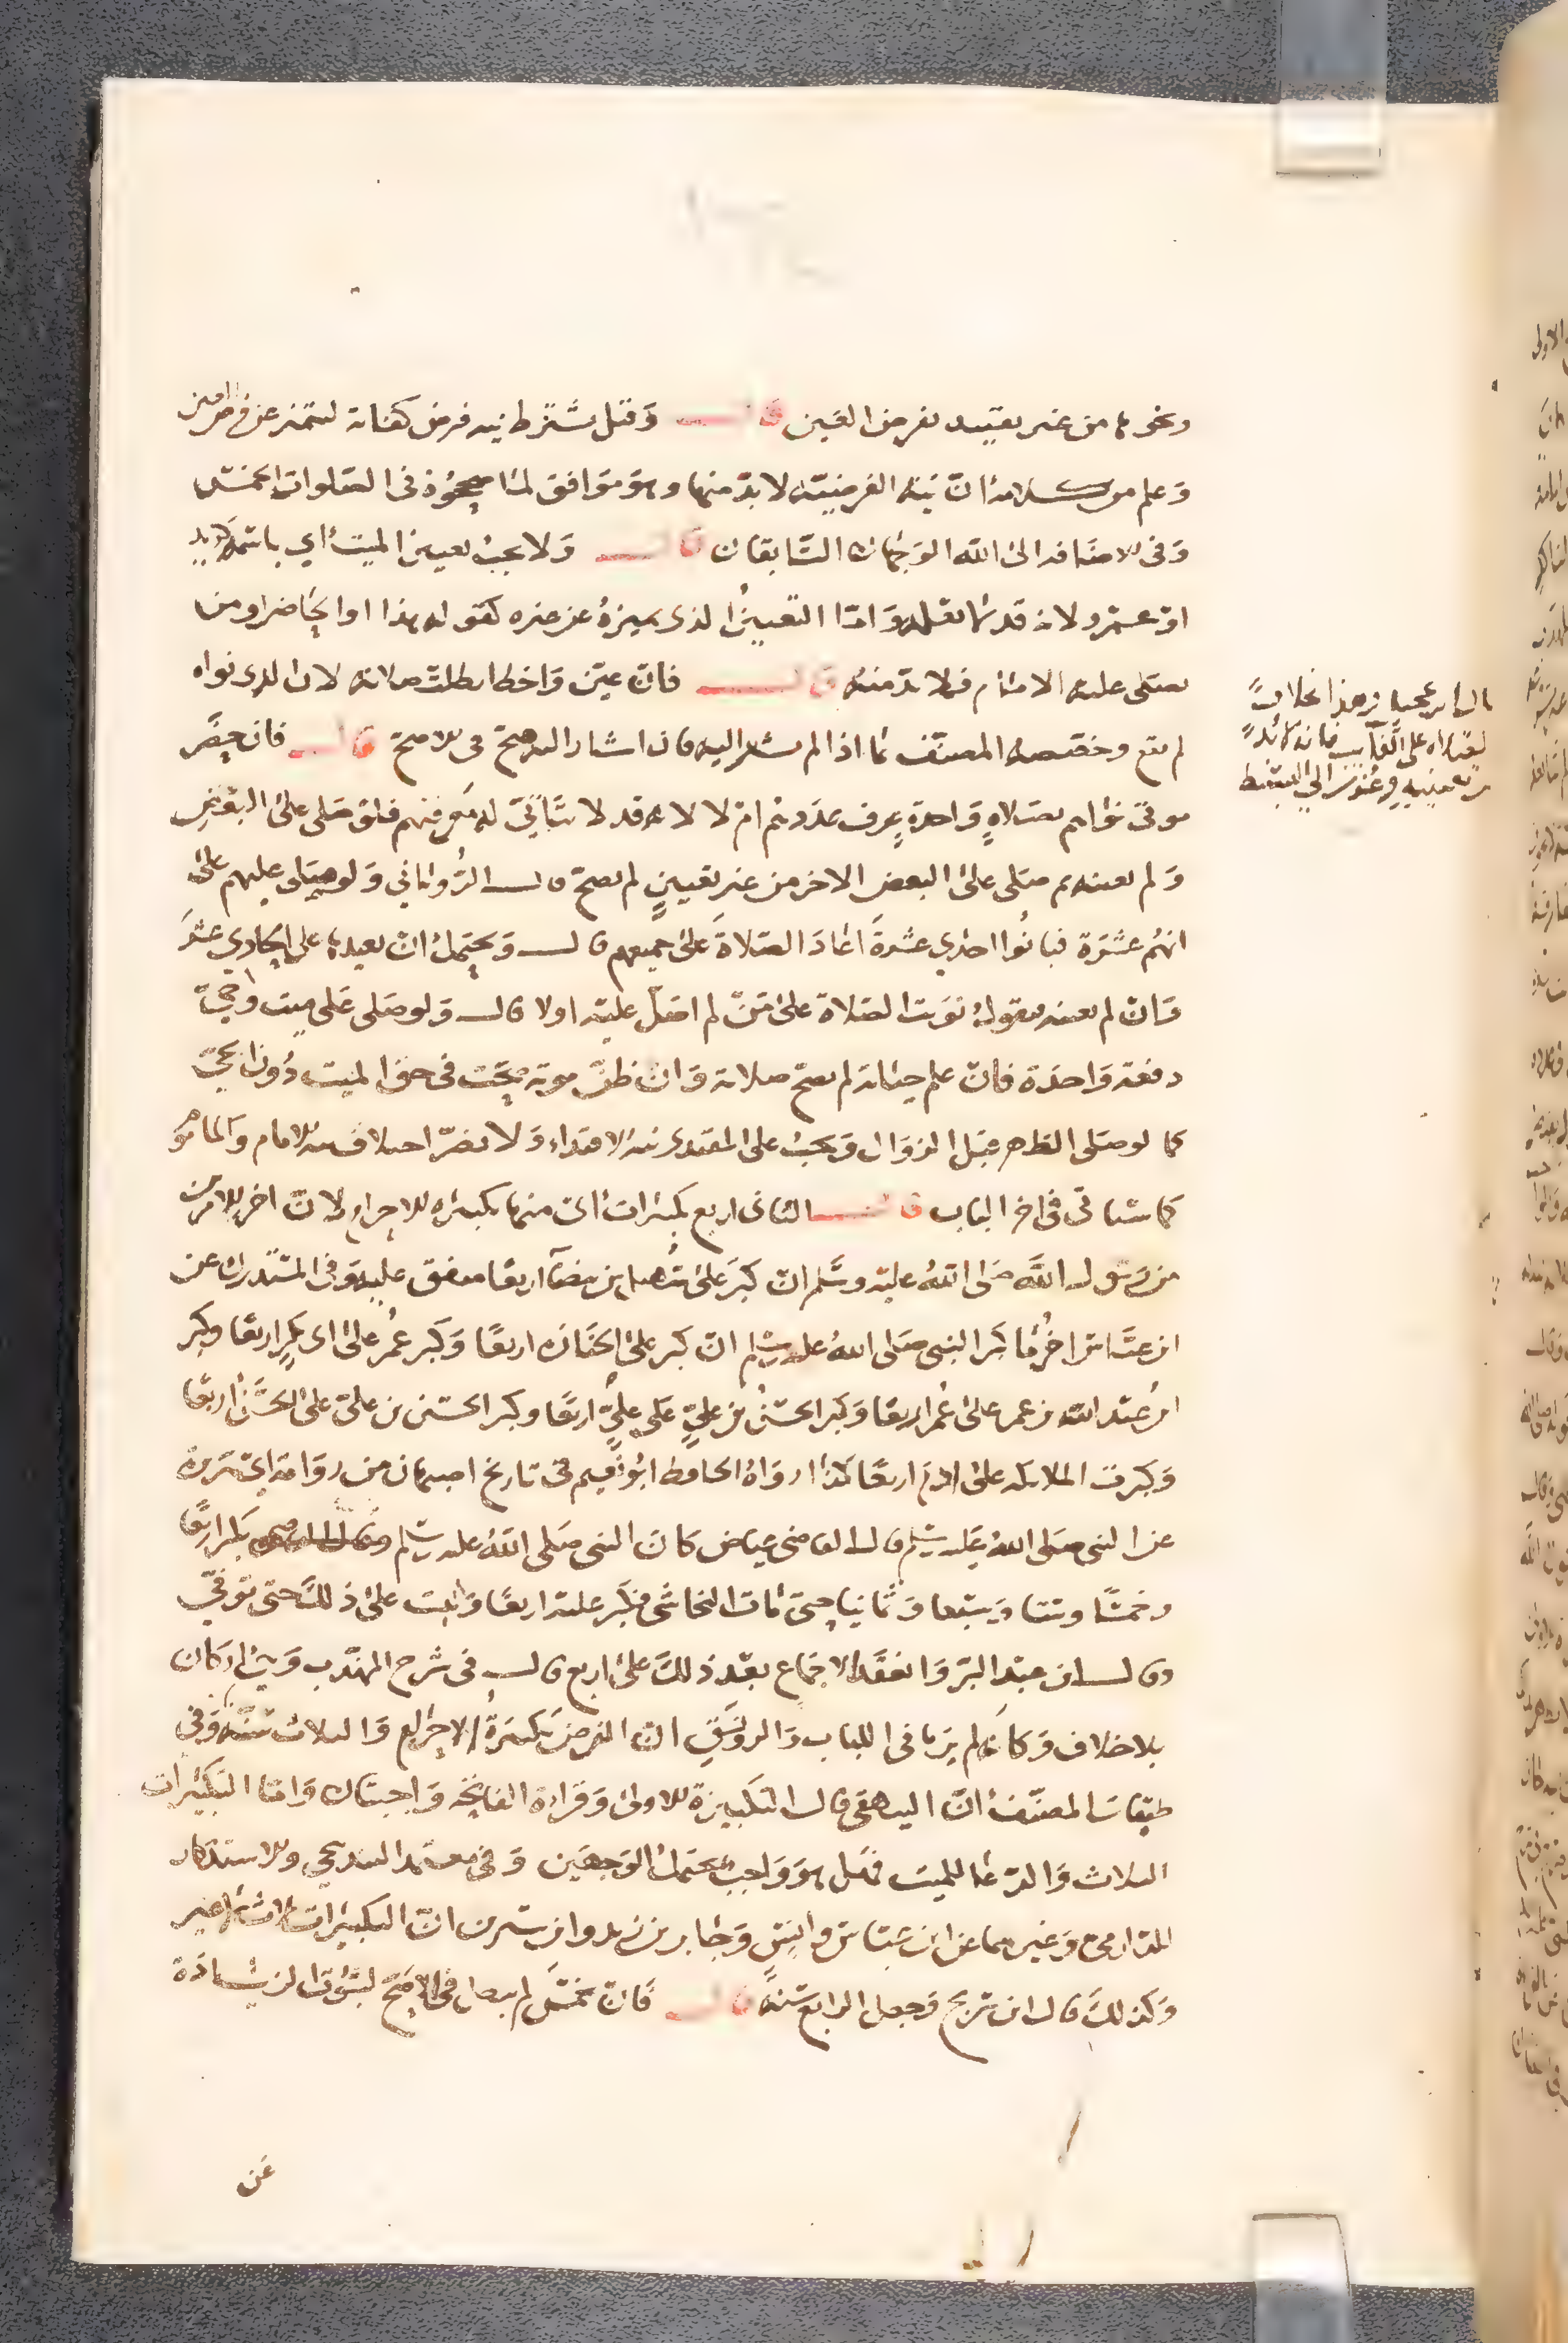 ونحوها من غير تقييد بفرض العين قال وقيل تشترط نية فرض كفاية لتتميز عن فرض العين
وعلم من كلامه ان نية الفرضية لا بد منها وهو موافق لما صححوه في الصلوات الخمس
وفي الاضافة الى الله الوجهان السابقان قال ولا يجب تعيين الميت اي باسمه كزيد
او عمرو لانه قد لا يعلمه واما التعيين الذي يميزه عن غيره كقوله هذا او الحاضر او من
يصلى عليه الامام فلا بد منه قال فان عين واخطا بطلت صلاته لان الذي نواه
لم يقع وخصصه المصنف بما اذا لم يشر اليه فان اشار اليه صح في الاصح قال فان حضر
موتى نواهم بصلاة واحدة عرف عددهم ام لا لانه قد لا يتاتى له معرفتهم فلو صلى على البعض
ولم يعينه ثم صلى على البعض الاخر من غير تعيين لم يصح قال الروياني ولو صلى عليهم على
انهم عشرة فبانوا احدى عشرة اعاد الصلاة على جميعهم قال ويحتمل ان يعيدها على الحادي عشر
فان لم يعينه بقوله نويت الصلاة على من لم اصل عليه اولا قال ولو صلى على ميت واحي
دفعة واحدة فان علم حياته لم تصح صلاته وان ظن موته صحت في حق الميت دون الحي
كما لو صلى الظهر قبل الزوال ويجب على المقتدي نية الاقتداء ولا يضر اختلاف نية الامام والماموم
كما سياتي في اخر الباب قال الثاني اربع تكبيرات اي منها تكبيرة الاحرام لان اخر الامرين
من رسول الله صلى الله عليه وسلم ان كبر على سهيل بن بيضا اربعا متفق عليه وفي المستدرك عن
ابن عباس اخر ما كبر النبي صلى الله عليه وسلم ان كبر على الجنازة اربعا وكبر عمر على ابي بكر اربعا وكبر
ابن عبد الله بن عمر على عمر اربعا وكبر الحسن بن علي على علي اربعا وكبر الحسين بن علي على الحسن اربعا
وكبرت الملائكة على ادم اربعا كذا رواه الحافظ ابو نعيم في تاريخ اصبهان من رواية ابي هريرة
عن النبي صلى الله عليه وسلم قال القاضي عياض كان النبي صلى الله عليه وسلم يكبر اربعا
وخمسا وستا وسبعا وثمانيا حتى مات النجاشي فكبر عليه اربعا وثبت على ذلك حتى توفي
وقال ابن عبد البر وانعقد الاجماع بعد ذلك على اربع قال في شرح المهذب وهي اركان
بلا خلاف وكانه لم ير ما في اللباب والرونق ان الفرض تكبيرة الاحرام والثلاث سنة وفي
طبقات المصنف ان البيهقي قال التكبيرة الاولى وقراءة الفاتحة واجبتان واما التكبيرات
الثلاث والدعا للميت فهل هو واجب يحتمل الوجهين وفي معتمد البندنيجي والاستذكار
للدارمي وغيرهما عن ابن عباس وانس وجابر بن زيد وابن سيرين ان التكبيرات ثلاث لا غير
وكذلك قال ابن سريج وجعل الرابع سنة قال فان خمس لم تبطل في الاصح لثبوت الزيادة
عن